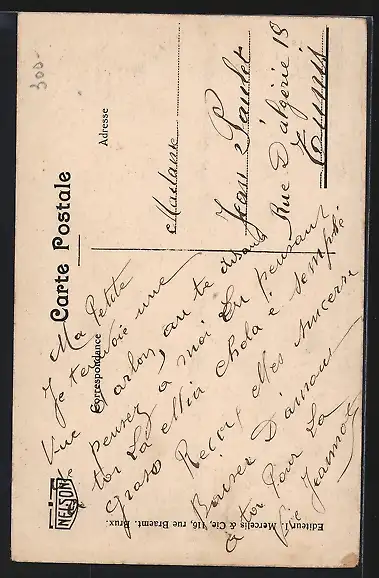 300-
Carte Postale
Correspondance
Adresse
Madame
Jean Paulet
Rue D'algérie 18
Tunis
Ma Petite
Je t'envoie une
Vue Darlon, au te disant
de pensez à moi En pensant
toi La Mia Chola è sempre
grass
Reçois Mes sincerse
Baiser D'amour
a toi Pour La
Vie Jeannot
NELS
Editeur J. Mercelis & Cie, 116, rue Braemt. Brux.